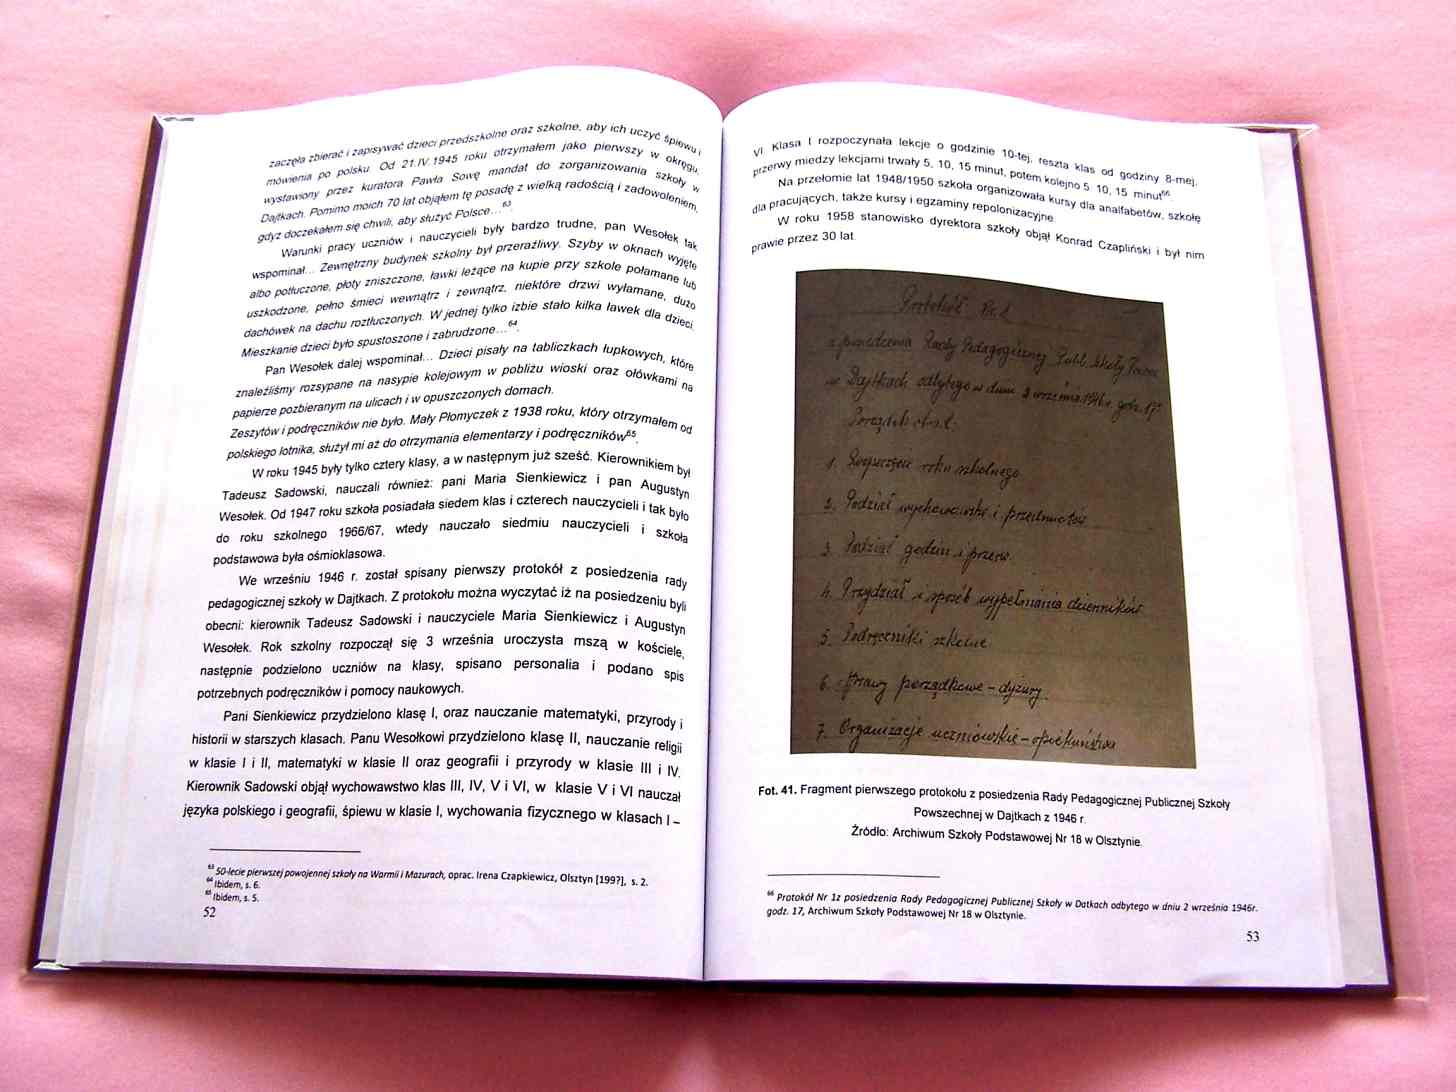 zaczęła zbierać i zapisywać dzieci przedszkolne oraz szkolne, aby ich uczyć śpiewu i
mówienia po polsku. Od 21.IV.1945 roku otrzymałem jako pierwszy w okręgu,
wystawiony przez kuratora Pawła Sowę mandat do zorganizowania szkoły w
Dajtkach. Pomimo moich 70 lat objąłem tę posadę z wielką radością i zadowoleniem,
gdyż doczekałem się chwili, aby służyć Polsce...⁶³.
Warunki pracy uczniów i nauczycieli były bardzo trudne, pan Wesołek tak
wspominał... Zewnętrzny budynek szkolny był przeraźliwy. Szyby w oknach wyjęte
albo potłuczone, płoty zniszczone, ławki leżące na kupie przy szkole połamane lub
uszkodzone, pełno śmieci wewnątrz i zewnątrz, niektóre drzwi wyłamane, dużo
dachówek na dachu roztłuczonych. W jednej tylko izbie stało kilka ławek dla dzieci.
Mieszkanie dzieci było spustoszone i zabrudzone...⁶⁴.
Pan Wesołek dalej wspominał... Dzieci pisały na tabliczkach łupkowych, które
znaleźliśmy rozsypane na nasypie kolejowym w pobliżu wioski oraz ołówkami na
papierze pozbieranym na ulicach i w opuszczonych domach.
Zeszytów i podręczników nie było. Mały Płomyczek z 1938 roku, który otrzymałem od
polskiego lotnika, służył mi aż do otrzymania elementarzy i podręczników⁶⁵.
W roku 1945 były tylko cztery klasy, a w następnym już sześć. Kierownikiem był
Tadeusz Sadowski, nauczali również: pani Maria Sienkiewicz i pan Augustyn
Wesołek. Od 1947 roku szkoła posiadała siedem klas i czterech nauczycieli i tak było
do roku szkolnego 1966/67, wtedy nauczało siedmiu nauczycieli i szkoła
podstawowa była ośmioklasowa.
We wrześniu 1946 r. został spisany pierwszy protokół z posiedzenia rady
pedagogicznej szkoły w Dajtkach. Z protokołu można wyczytać iż na posiedzeniu byli
obecni: kierownik Tadeusz Sadowski i nauczyciele Maria Sienkiewicz i Augustyn
Wesołek. Rok szkolny rozpoczął się 3 września uroczysta mszą w kościele,
następnie podzielono uczniów na klasy, spisano personalia i podano spis
potrzebnych podręczników i pomocy naukowych.
Pani Sienkiewicz przydzielono klasę I, oraz nauczanie matematyki, przyrody i
historii w starszych klasach. Panu Wesołkowi przydzielono klasę II, nauczanie religii
w klasie I i II, matematyki w klasie II oraz geografii i przyrody w klasie III i IV.
Kierownik Sadowski objął wychowawstwo klas III, IV, V i VI, w klasie V i VI nauczał
języka polskiego i geografii, śpiewu w klasie I, wychowania fizycznego w klasach I –
⁶³ 50-lecie pierwszej powojennej szkoły na Warmii i Mazurach, oprac. Irena Czapkiewicz, Olsztyn [199?], s. 2.
⁶⁴ Ibidem, s. 6.
⁶⁵ Ibidem, s. 5.
52
VI. Klasa I rozpoczynała lekcje o godzinie 10-tej, reszta klas od godziny 8-mej,
przerwy miedzy lekcjami trwały 5, 10, 15 minut, potem kolejno 5, 10, 15 minut⁶⁶.
Na przełomie lat 1948/1950 szkoła organizowała kursy dla analfabetów, szkołę
dla pracujących, także kursy i egzaminy repolonizacyjne.
W roku 1958 stanowisko dyrektora szkoły objął Konrad Czapliński i był nim
prawie przez 30 lat.
Protokół Nr 1
z posiedzenia Rady Pedagogicznej Publ. Szkoły Powsz.
w Dajtkach odbytego w dniu 2 września 1946 r. godz. 17
Porządek obrad:
1. Rozpoczęcie roku szkolnego
2. Podział wychowawstw i przedmiotów
3. Podział godzin i przerw
4. Przydział i sposób wypełniania dzienników
5. Podręczniki szkolne
6. Sprawy porządkowe – dyżury
7. Organizacje uczniowskie – opiekuństwa
Fot. 41. Fragment pierwszego protokołu z posiedzenia Rady Pedagogicznej Publicznej Szkoły
Powszechnej w Dajtkach z 1946 r.
Źródło: Archiwum Szkoły Podstawowej Nr 18 w Olsztynie.
⁶⁶ Protokół Nr 1z posiedzenia Rady Pedagogicznej Publicznej Szkoły w Datkach odbytego w dniu 2 września 1946r.
godz. 17, Archiwum Szkoły Podstawowej Nr 18 w Olsztynie.
53